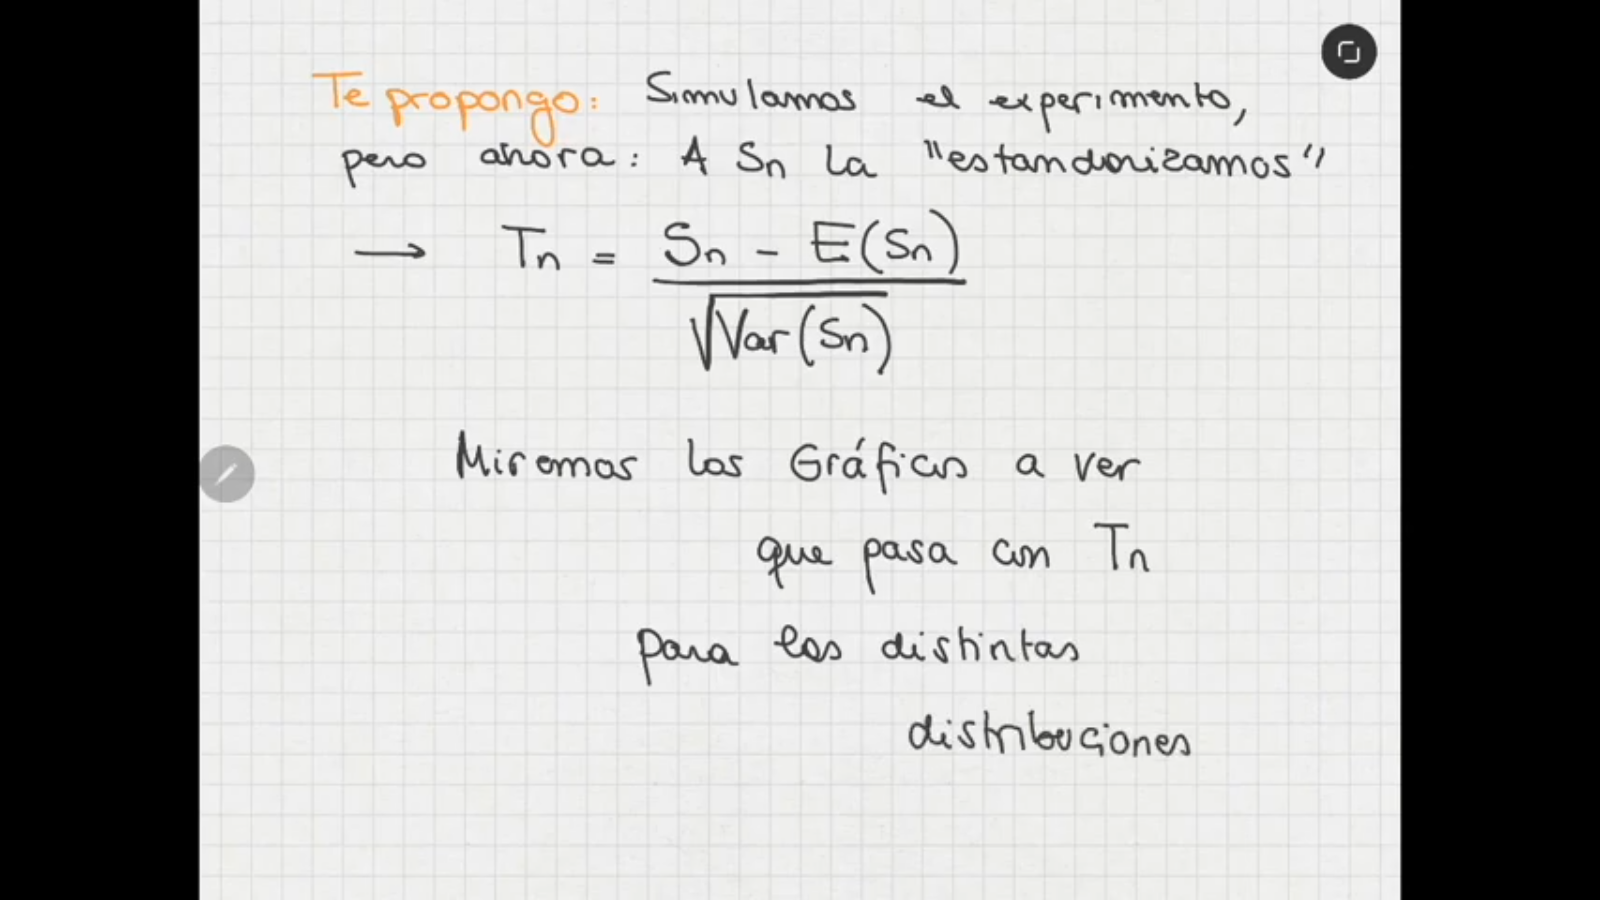 Te propongo: Simulamos el experimento,
pero ahora: A Sn la "estandarizamos"
→ Tn = Sn - E(Sn)
√Var(Sn)
Miremos las Gráficas a ver
que pasa con Tn
para las distintas
distribuciones